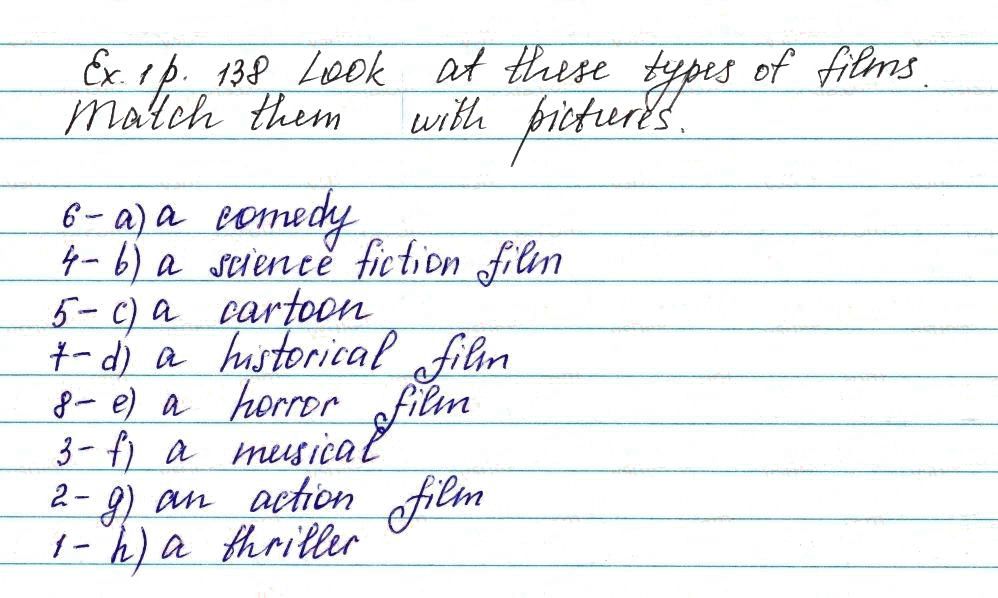 Ex. 1 p. 138 Look at these types of films.
Match them with pictures.
6 - a) a comedy
4 - b) a science fiction film
5 - c) a cartoon
7 - d) a historical film
8 - e) a horror film
3 - f) a musical
2 - g) an action film
1 - h) a thriller